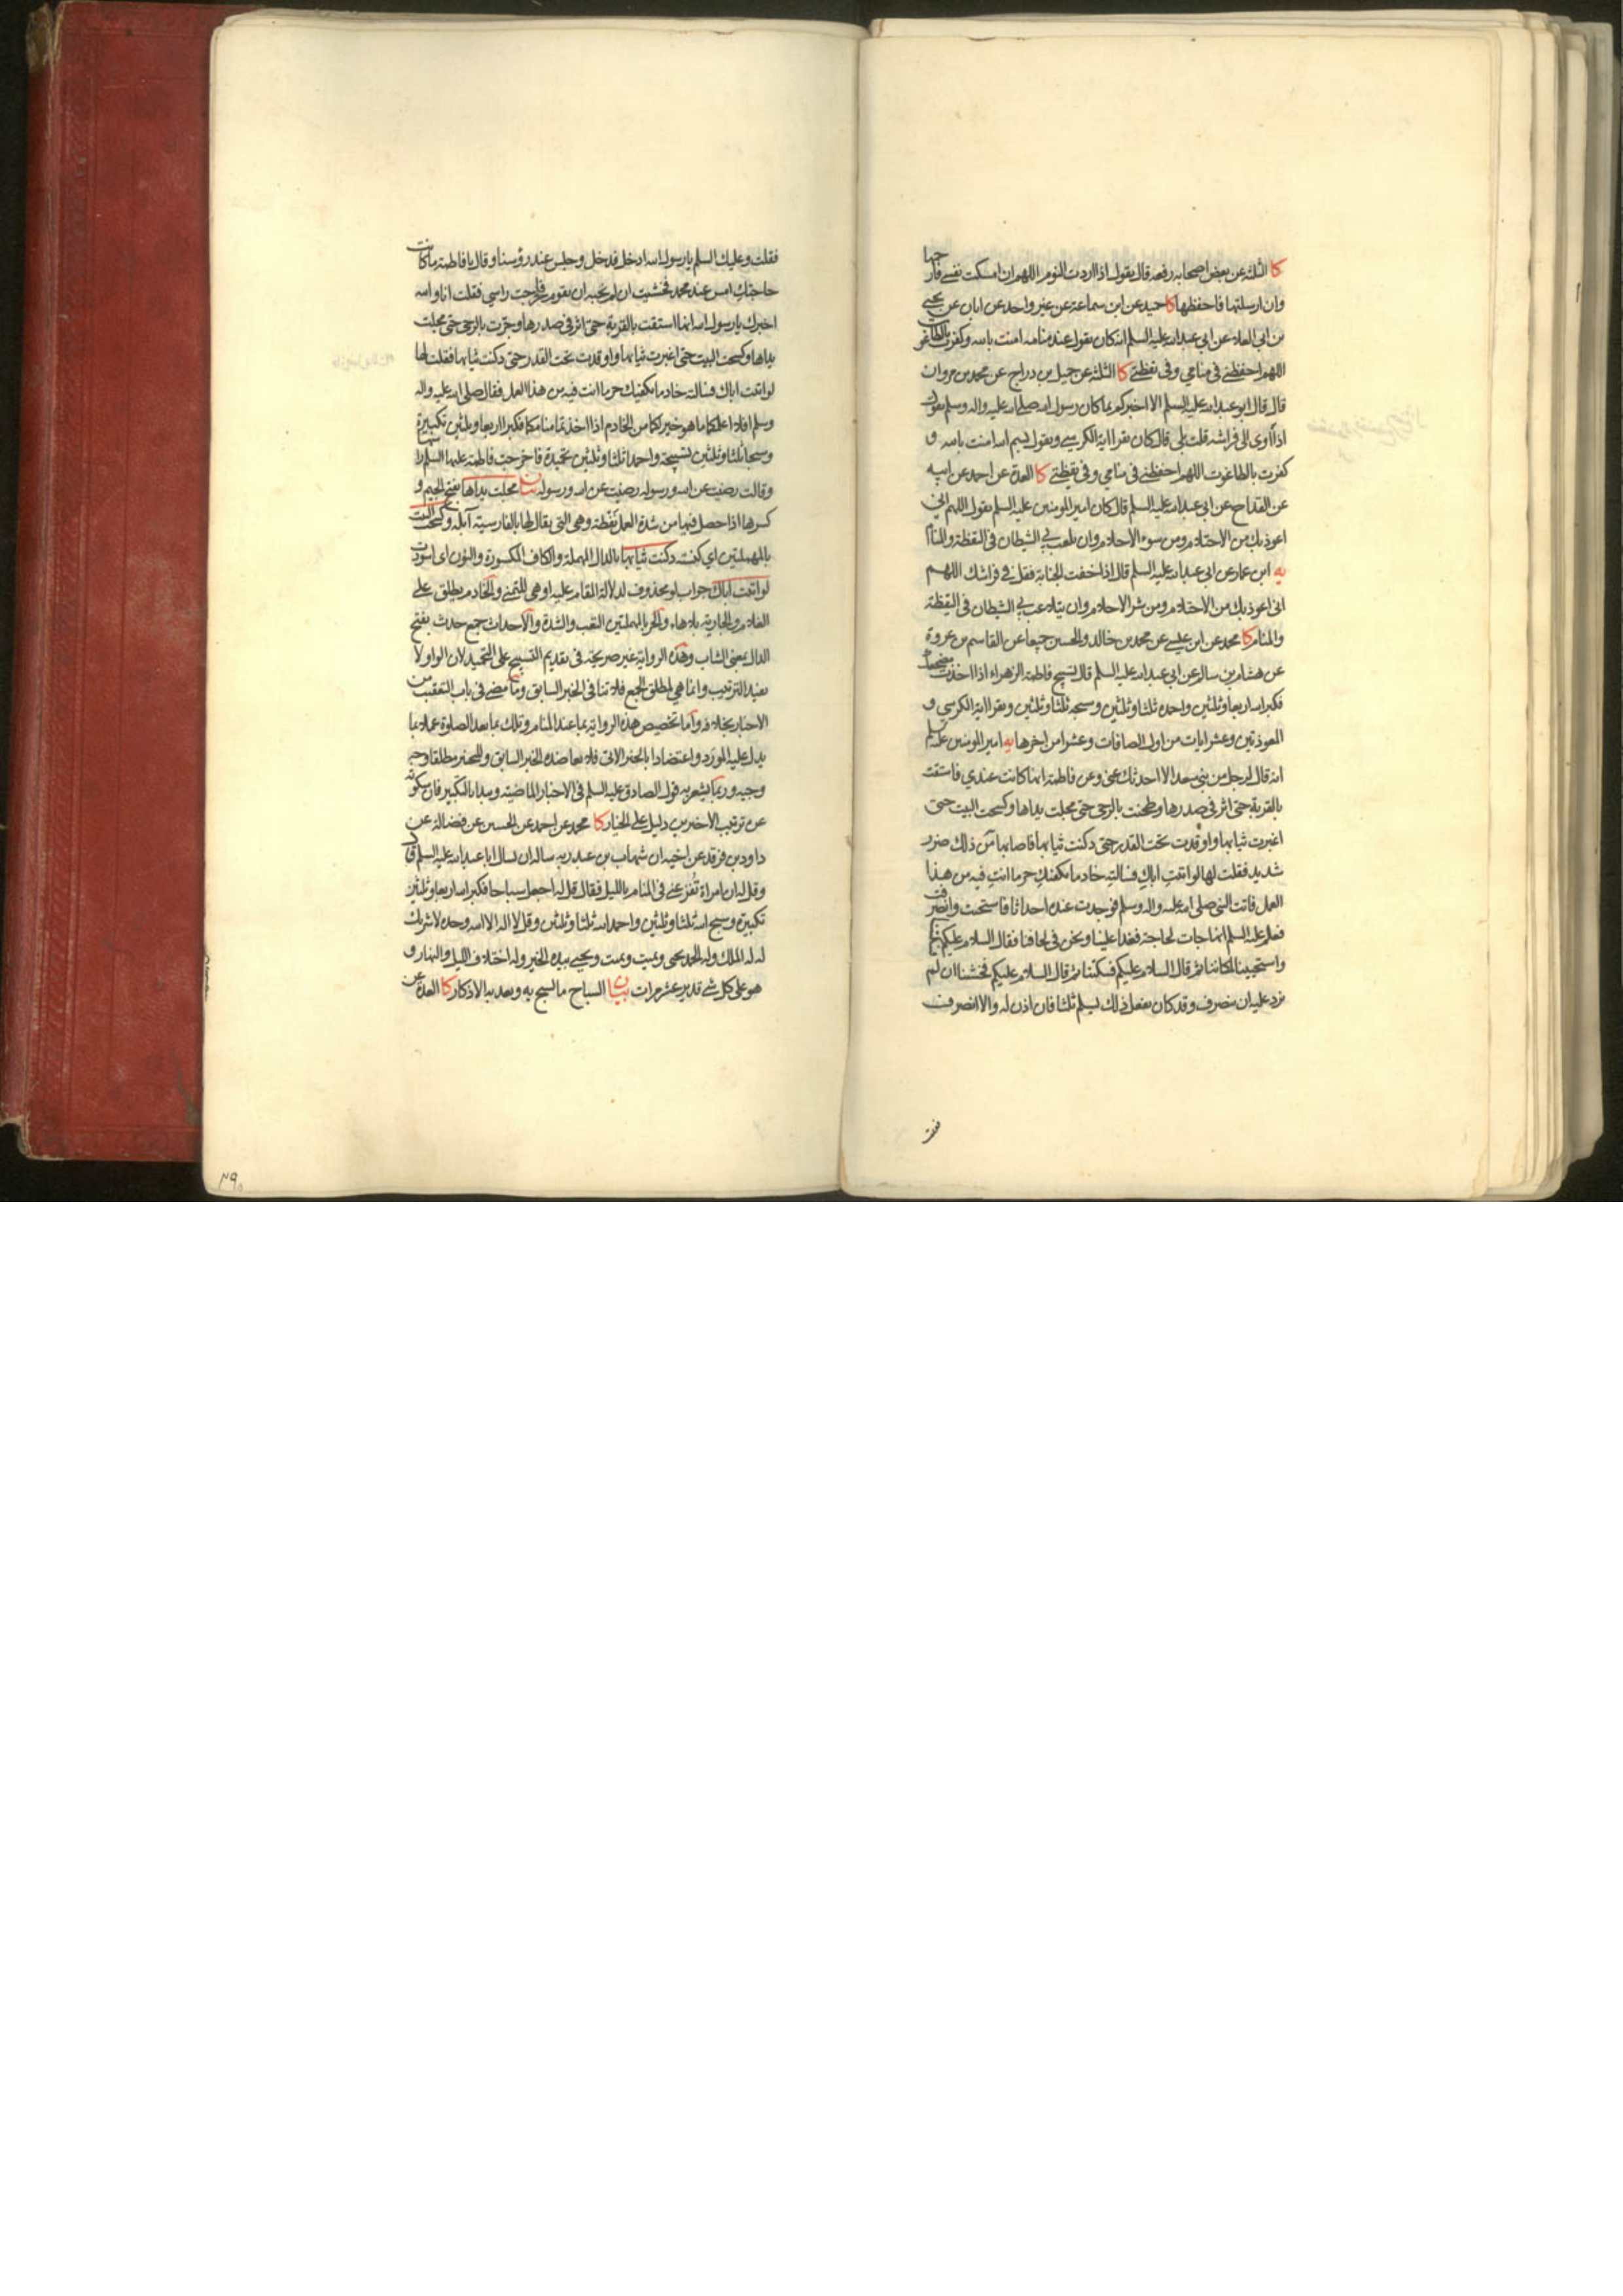 كا الثلثة عن بعض اصحابه رفعه قال يقول اذا اردت النوم اللهم ان امسكت نفسي فارحمها
وان ارسلتها فاحفظها كا حميد عن ابن سماعة عن غير واحد عن ابان عن يحيى
بن ابي العلاء عن ابي عبد الله عليه السلم انه كان يقول عند منامه امنت بالله وكفرت بالطاغوت
اللهم احفظني في منامي وفي يقظتي كا الثلثة عن جميل بن دراج عن محمد بن مروان
قال قال ابو عبد الله عليه السلم الا اخبركم بما كان رسول الله صلى الله عليه واله وسلم يقول
اذا اوى الى فراشه قلت بلى قال كان يقرا اية الكرسي ويقول بسم الله امنت بالله و
كفرت بالطاغوت اللهم احفظني في منامي وفي يقظتي كا العدة عن احمد عن ابيه
عن القداح عن ابي عبد الله عليه السلم قال كان امير المومنين عليه السلم يقول اللهم اني
اعوذ بك من الاحتلام ومن سوء الاحلام وان يلعب بي الشيطان في اليقظة والمنام
يه ابن عمار عن ابي عبد الله عليه السلم قال اذا خفت الجنابة فقل في فراشك اللهم
انى اعوذ بك من الاحتلام ومن شر الاحلام وان يتلاعب بي الشيطان في اليقظة
والمنام كا محمد عن ابن عيسى عن محمد بن خالد والحسين جميعا عن القاسم بن عروة
عن هشام بن سالم عن ابي عبد الله عليه السلم قال تسبيح فاطمة الزهراء اذا اخذت مضجعك
فكبر الله اربعا وثلثين واحمده ثلثا وثلثين وسبحه ثلثا وثلثين وتقرا اية الكرسي و
المعوذتين وعشر ايات من اول الصافات وعشرا من اخرها يه امير المومنين عليه السلم
انه قال لرجل من بني سعد الا احدثك عني وعن فاطمة انها كانت عندي فاستقت
بالقربة حتى اثر في صدرها وطحنت بالرحى حتى مجلت يداها وكسحت البيت حتى
اغبرت ثيابها واوقدت تحت القدر حتى دكنت ثيابها فاصابها من ذلك ضرر
شديد فقلت لها لو اتيت اباك فسالتيه خادما يكفيك حر ما انت فيه من هذا
العمل فاتت النبي صلى الله عليه واله وسلم فوجدت عنده احداثا فاستحيت وانصرفت
فعلم عليه السلم انها جات لحاجة فغدا علينا ونحن في لحافنا فقال السلام عليكم فسكتنا
واستحيينا لمكاننا ثم قال السلام عليكم فسكتنا ثم قال السلام عليكم فخشينا ان لم
نرد عليه ان ينصرف وقد كان يفعل ذلك يسلم ثلثا فان اذن له والا انصرف
فقلت
فقلت وعليك السلم يا رسول الله ادخل فدخل وجلس عند رؤسنا وقال يا فاطمة ما كانت
حاجتك امس عند محمد فخشيت ان لم نجبه ان يقوم فاخرجت راسي فقلت انا والله
اخبرك يا رسول الله انها استقت بالقربة حتى اثر في صدرها وجرت بالرحى حتى مجلت
يداها وكسحت البيت حتى اغبرت ثيابها واوقدت تحت القدر حتى دكنت ثيابها فقلت لها
لو اتيت اباك فسالته خادما يكفيك حر ما انت فيه من هذا العمل فقال صلى الله عليه واله
وسلم افلا اعلمكما ما هو خير لكما من الخادم اذا اخذتما منامكما فكبرا اربعا وثلثين تكبيرة
وسبحا ثلثا وثلثين تسبيحة واحمدا ثلثا وثلثين تحميدة فاخرجت فاطمة عليها السلم راسها
وقالت رضيت عن الله ورسوله رضيت عن الله ورسوله بيان مجلت يداها بفتح الجيم و
كسرها اذا حصل فيها من شدة العمل نفطة وهي التي يقال لها بالفارسية آبله وكسحت البيت
بالمهملتين اي كنسته ودكنت ثيابها بالدال المهملة والكاف المكسورة والنون اى اسودت
لو اتيت اباك جواب لو محذوف لدلالة المقام عليه او هي للتمني والخادم يطلق على
الغلام والجارية بلا هاء والحر بالمهملتين التعب والشدة والاحداث جمع حدث بفتح
الدال بمعنى الشاب وهذه الرواية غير صريحة في تقديم التسبيح على التحميد لان الواو لا
يفيد الترتيب وانما هي لمطلق الجمع فلا تنافي الخبر السابق وما مضى في باب التعقيب من
الاخبار بخلافه واما تخصيص هذه الرواية بما عند المنام وتلك بما بعد الصلوة عملا بما
يدل عليه المورد واعتضادا بالخبر الاتي فلا يعاضده الخبر السابق وللتخيير مطلقا وجه
وجيه وربما يشعر به قول الصادق عليه السلم في الاخبار الماضية وبدا بالتكبير فان سكوته
عن ترتيب الاخيرين دليل على الخيار كا محمد عن احمد عن الحسين عن فضالة عن
داود بن فرقد عن اخيه ان شهاب بن عبد ربه ساله ان يسال ابا عبد الله عليه السلم قال
وقل له ان امراة تفزعني في المنام بالليل فقال قل له اجعل سباحا فكبر الله اربعا وثلثين
تكبيرة وسبح الله ثلثا وثلثين واحمد الله ثلثا وثلثين وقل لا اله الا الله وحده لا شريك
له له الملك وله الحمد يحيى ويميت ويميت ويحيي بيده الخير وله اختلاف الليل والنهار و
هو على كل شي قدير عشر مرات بيان السباح ما يسبح به ويعد به الاذكار كا العدة عن
۲۹۰